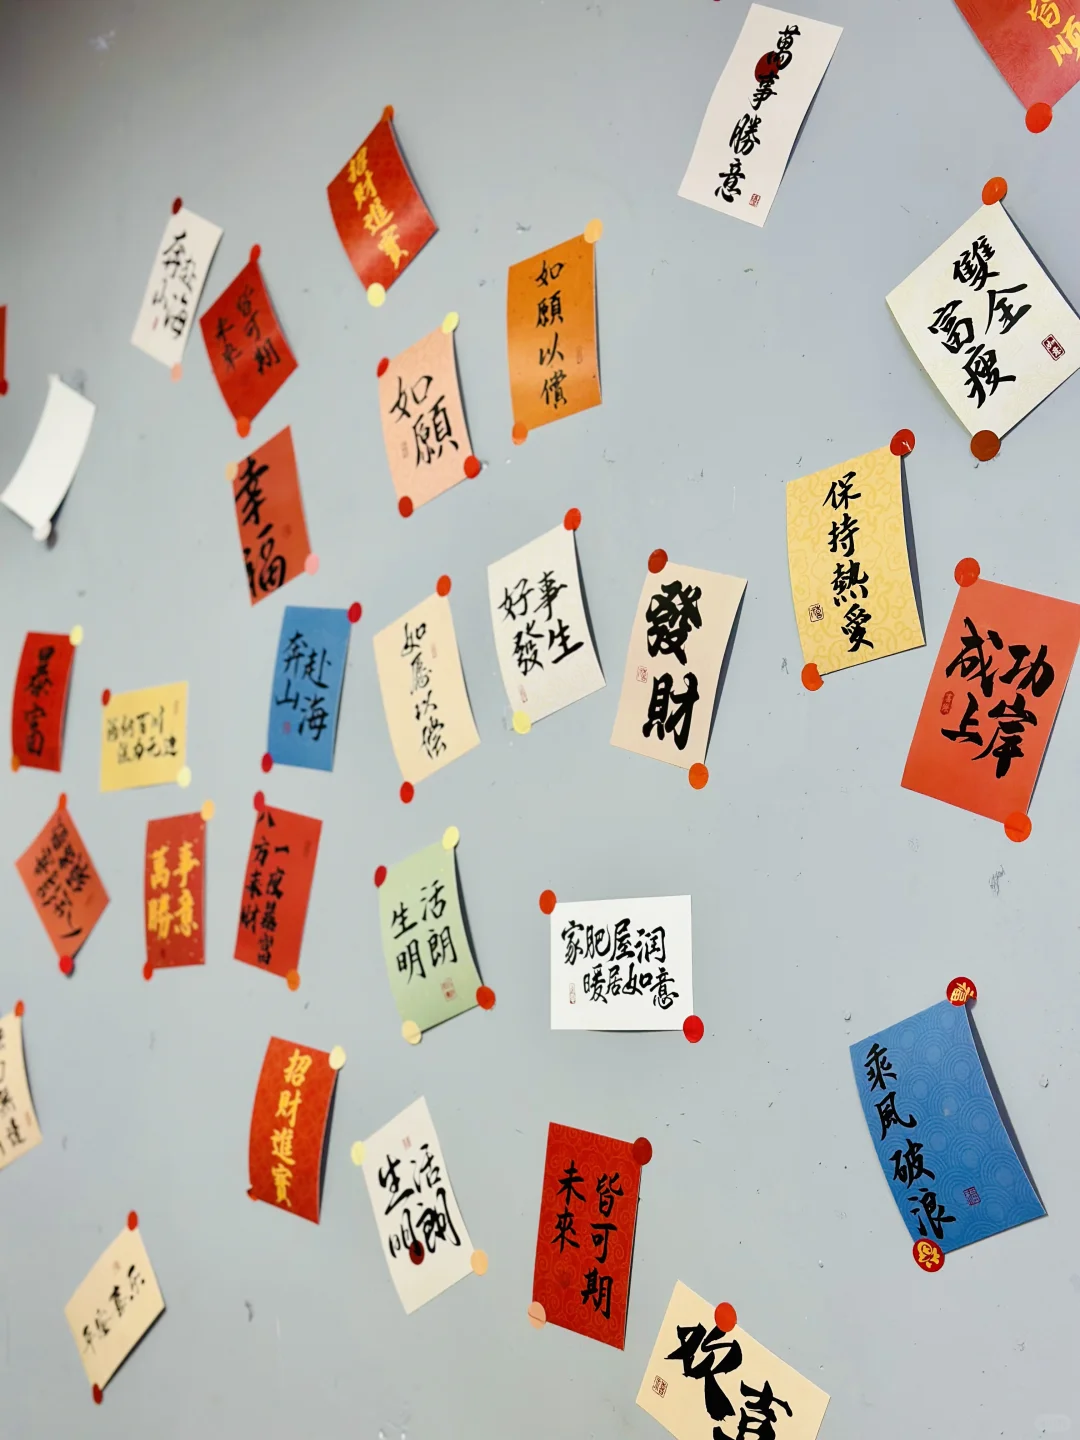 萬事勝意
招財進寶
奔赴
山海
皆可期
未來
如願以償
如願
雙全
富瘦
幸福
保持熱愛
好事
發生
發財
成功
上岸
暴富
奔赴
山海
如愿以偿
萬事
勝意
八方來財
一夜暴富
生活
明朗
家肥屋润
暖居如意
招財進寶
生活
明朗
皆可期
未來
乘風破浪
平安喜乐
欢喜
福